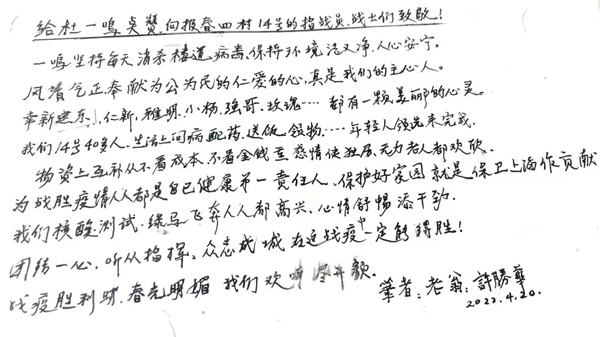 给杜一鸣点赞.向报春四村14号的指战员.战士们致敬!
一鸣坚持每天清杀楼道病毒、保持环境洁又净.人心安宁。
风清气正奉献为公为民的仁爱的心,真是我们的主心人。
幸新建东、仁新,雅明.小杨,强哥.玫瑰……都有一颗美丽的心灵。
我们14号40多人.生活上问病配药、送饭、领物……年轻人领先来完成.
物资上互补从不看成本.不看金钱至悫情使独居无力老人都欢欣.
为战胜疫情人人都是自己健康第一责任人、保护好家园就是保卫上海作贡献
我们核酸测试.绿马飞奔人人都高兴、心情舒畅添干劲.
团结一心,听从指挥、众志成城在这战疫中一定能得胜!
战疫胜利时.春光明媚我们欢 尽开颜。
筆者:老翁:許勝華
2022.4.20.